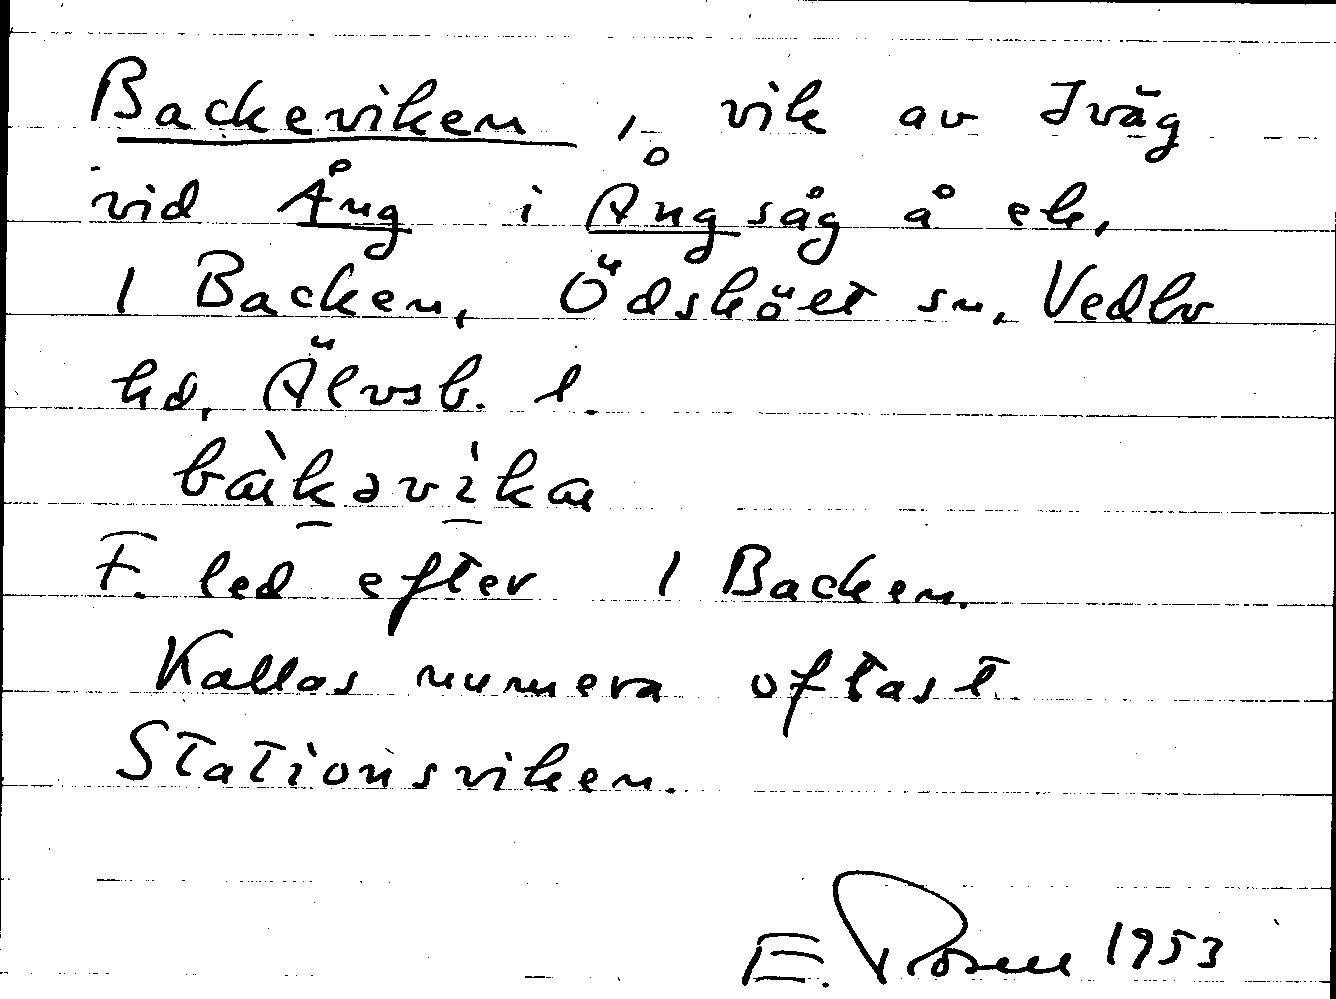 Backeviken, vik av Iväg
vid Ång i Ångsåg å ek.
1 Backen, Ödskölt sn, Vedbo
hd, Älvsb. l.
bàkəvìka
F. led efter 1 Backen.
Kallas numera oftast
Stationsviken.
E. Rosell 1953